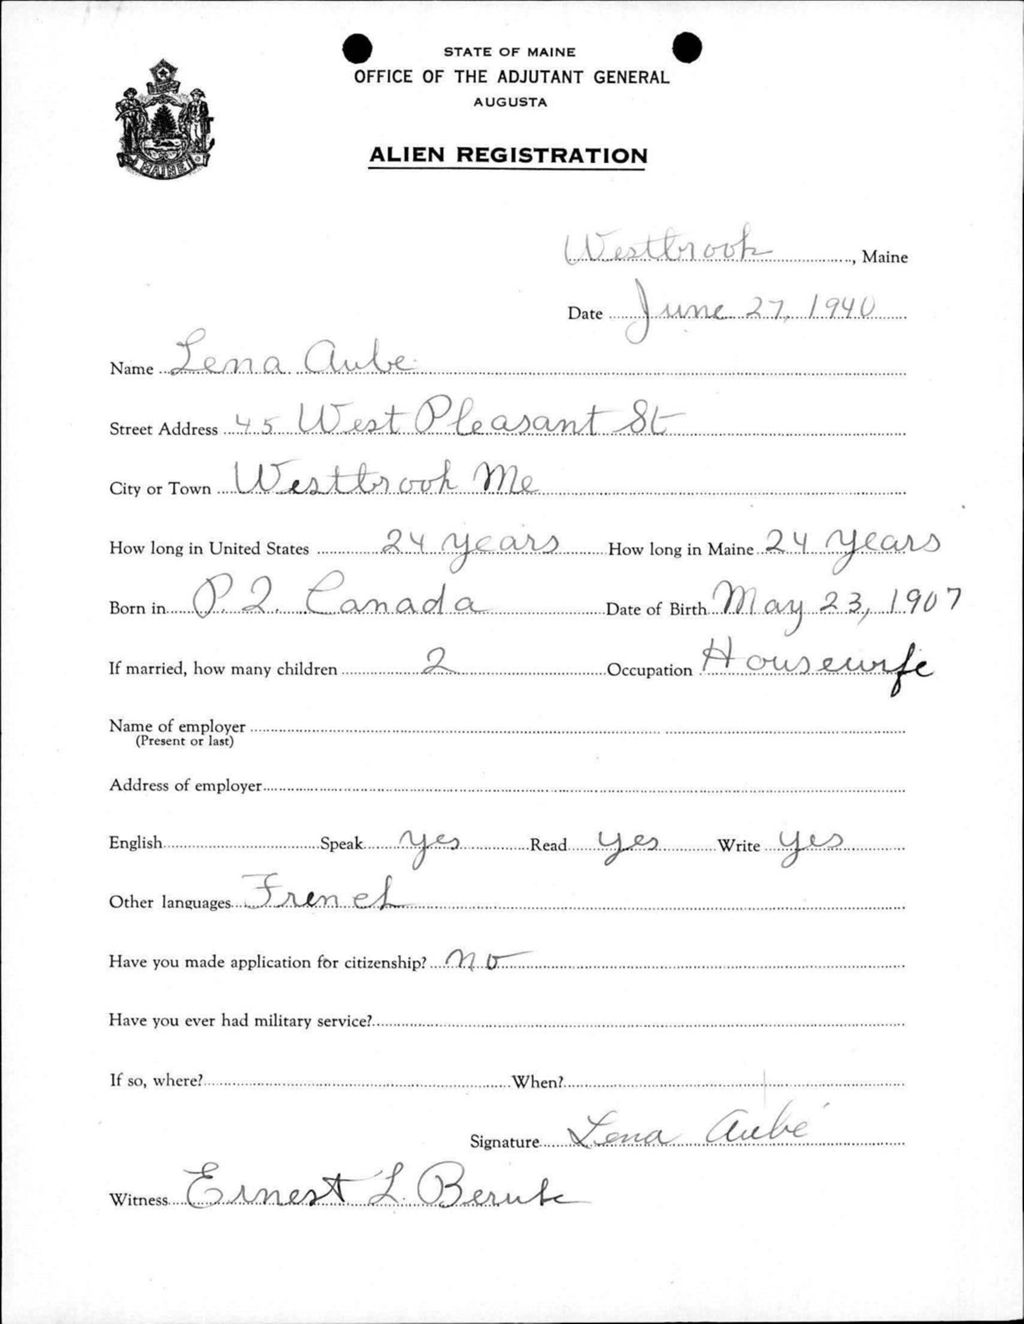 STATE OF MAINE
OFFICE OF THE ADJUTANT GENERAL
AUGUSTA
ALIEN REGISTRATION
MAINE
Westbrook, Maine
Date June 27, 1940
Name Lena Aube
Street Address 45 West Pleasant St
City or Town Westbrook Me
How long in United States 24 years How long in Maine 24 years
Born in P.Q. Canada Date of Birth May 23, 1907
If married, how many children 2 Occupation Housewife
Name of employer
(Present or last)
Address of employer
English Speak yes Read yes Write yes
Other languages French
Have you made application for citizenship? no
Have you ever had military service?
If so, where? When?
Signature Lena Aubé
Witness Ernest L. Berube